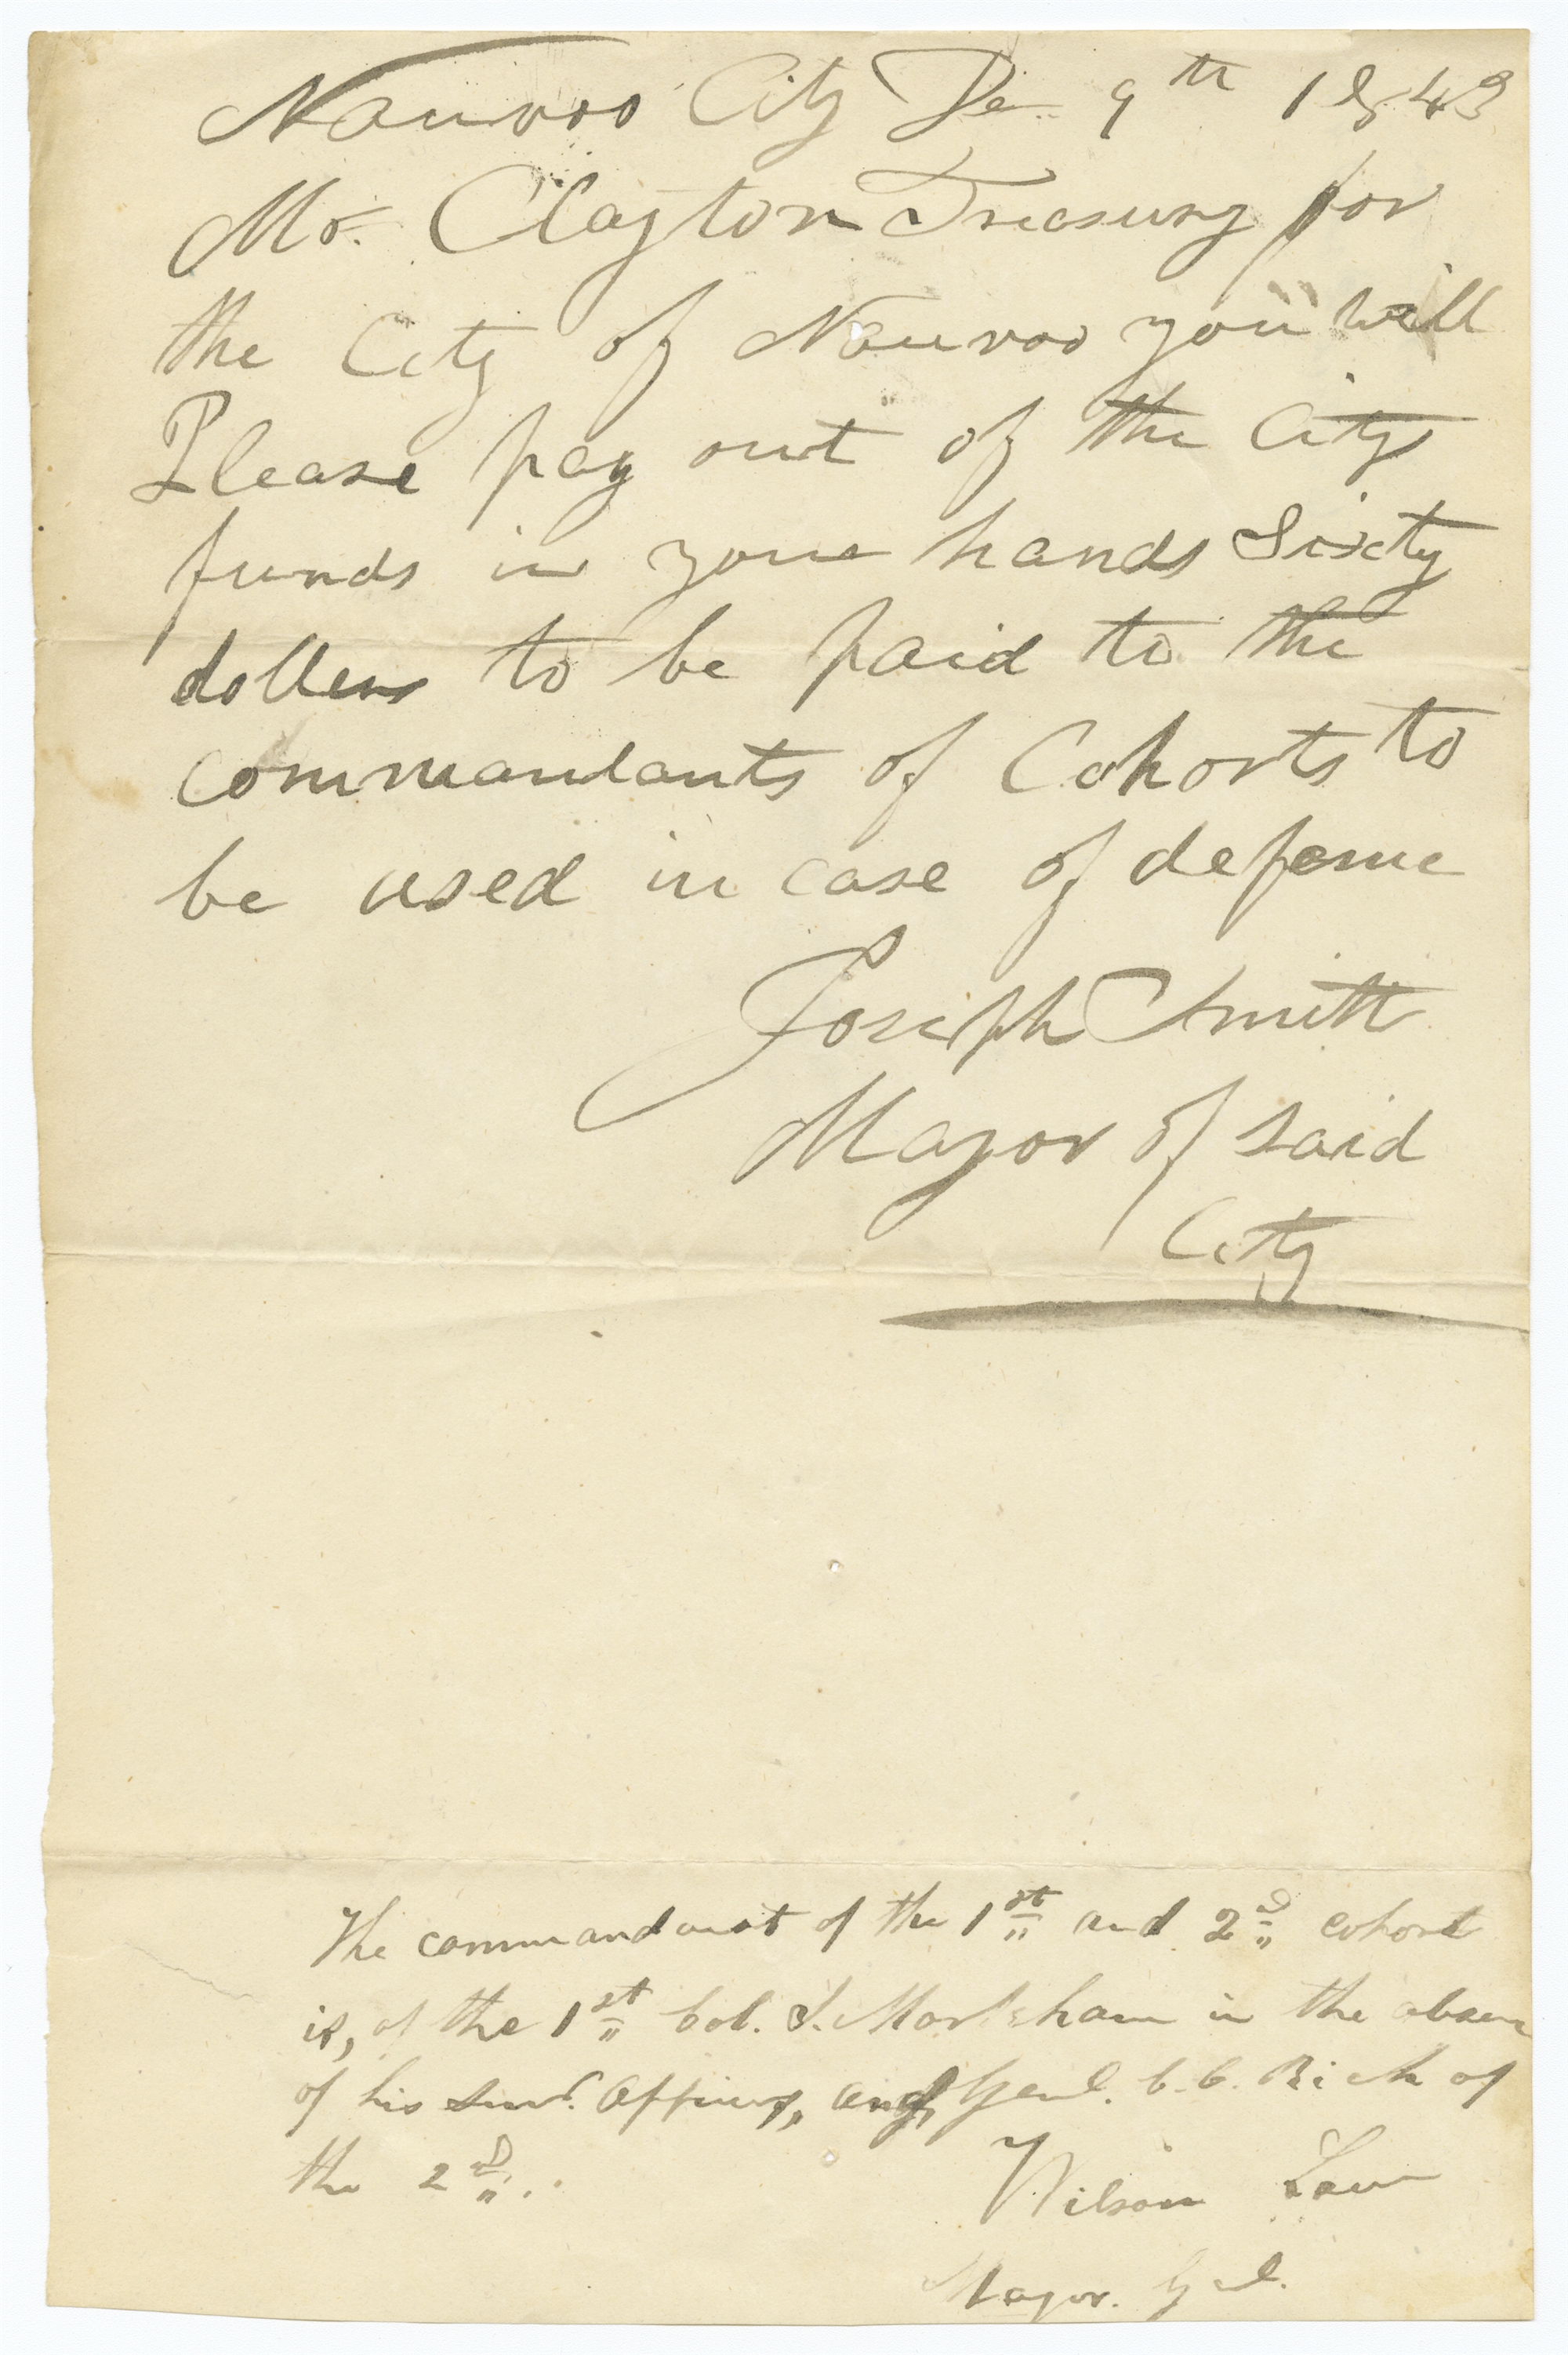 Nauvoo City De 9th 1843
Mr. Clayton Treasury for
the City of Nauvoo you will
Please pay out of the City
funds in your hands Sixty
dollers to be paid to the
commandants of Cohorts to
be used in case of defence
Joseph Smith
Mayor of said
City
The commandant of the 1st and 2d cohort
is, of the 1st Col. S. Markham in the absen
of his officers, and Genl. C. C. Rich of
the 2d.
Wilson Law
Major. Genl.